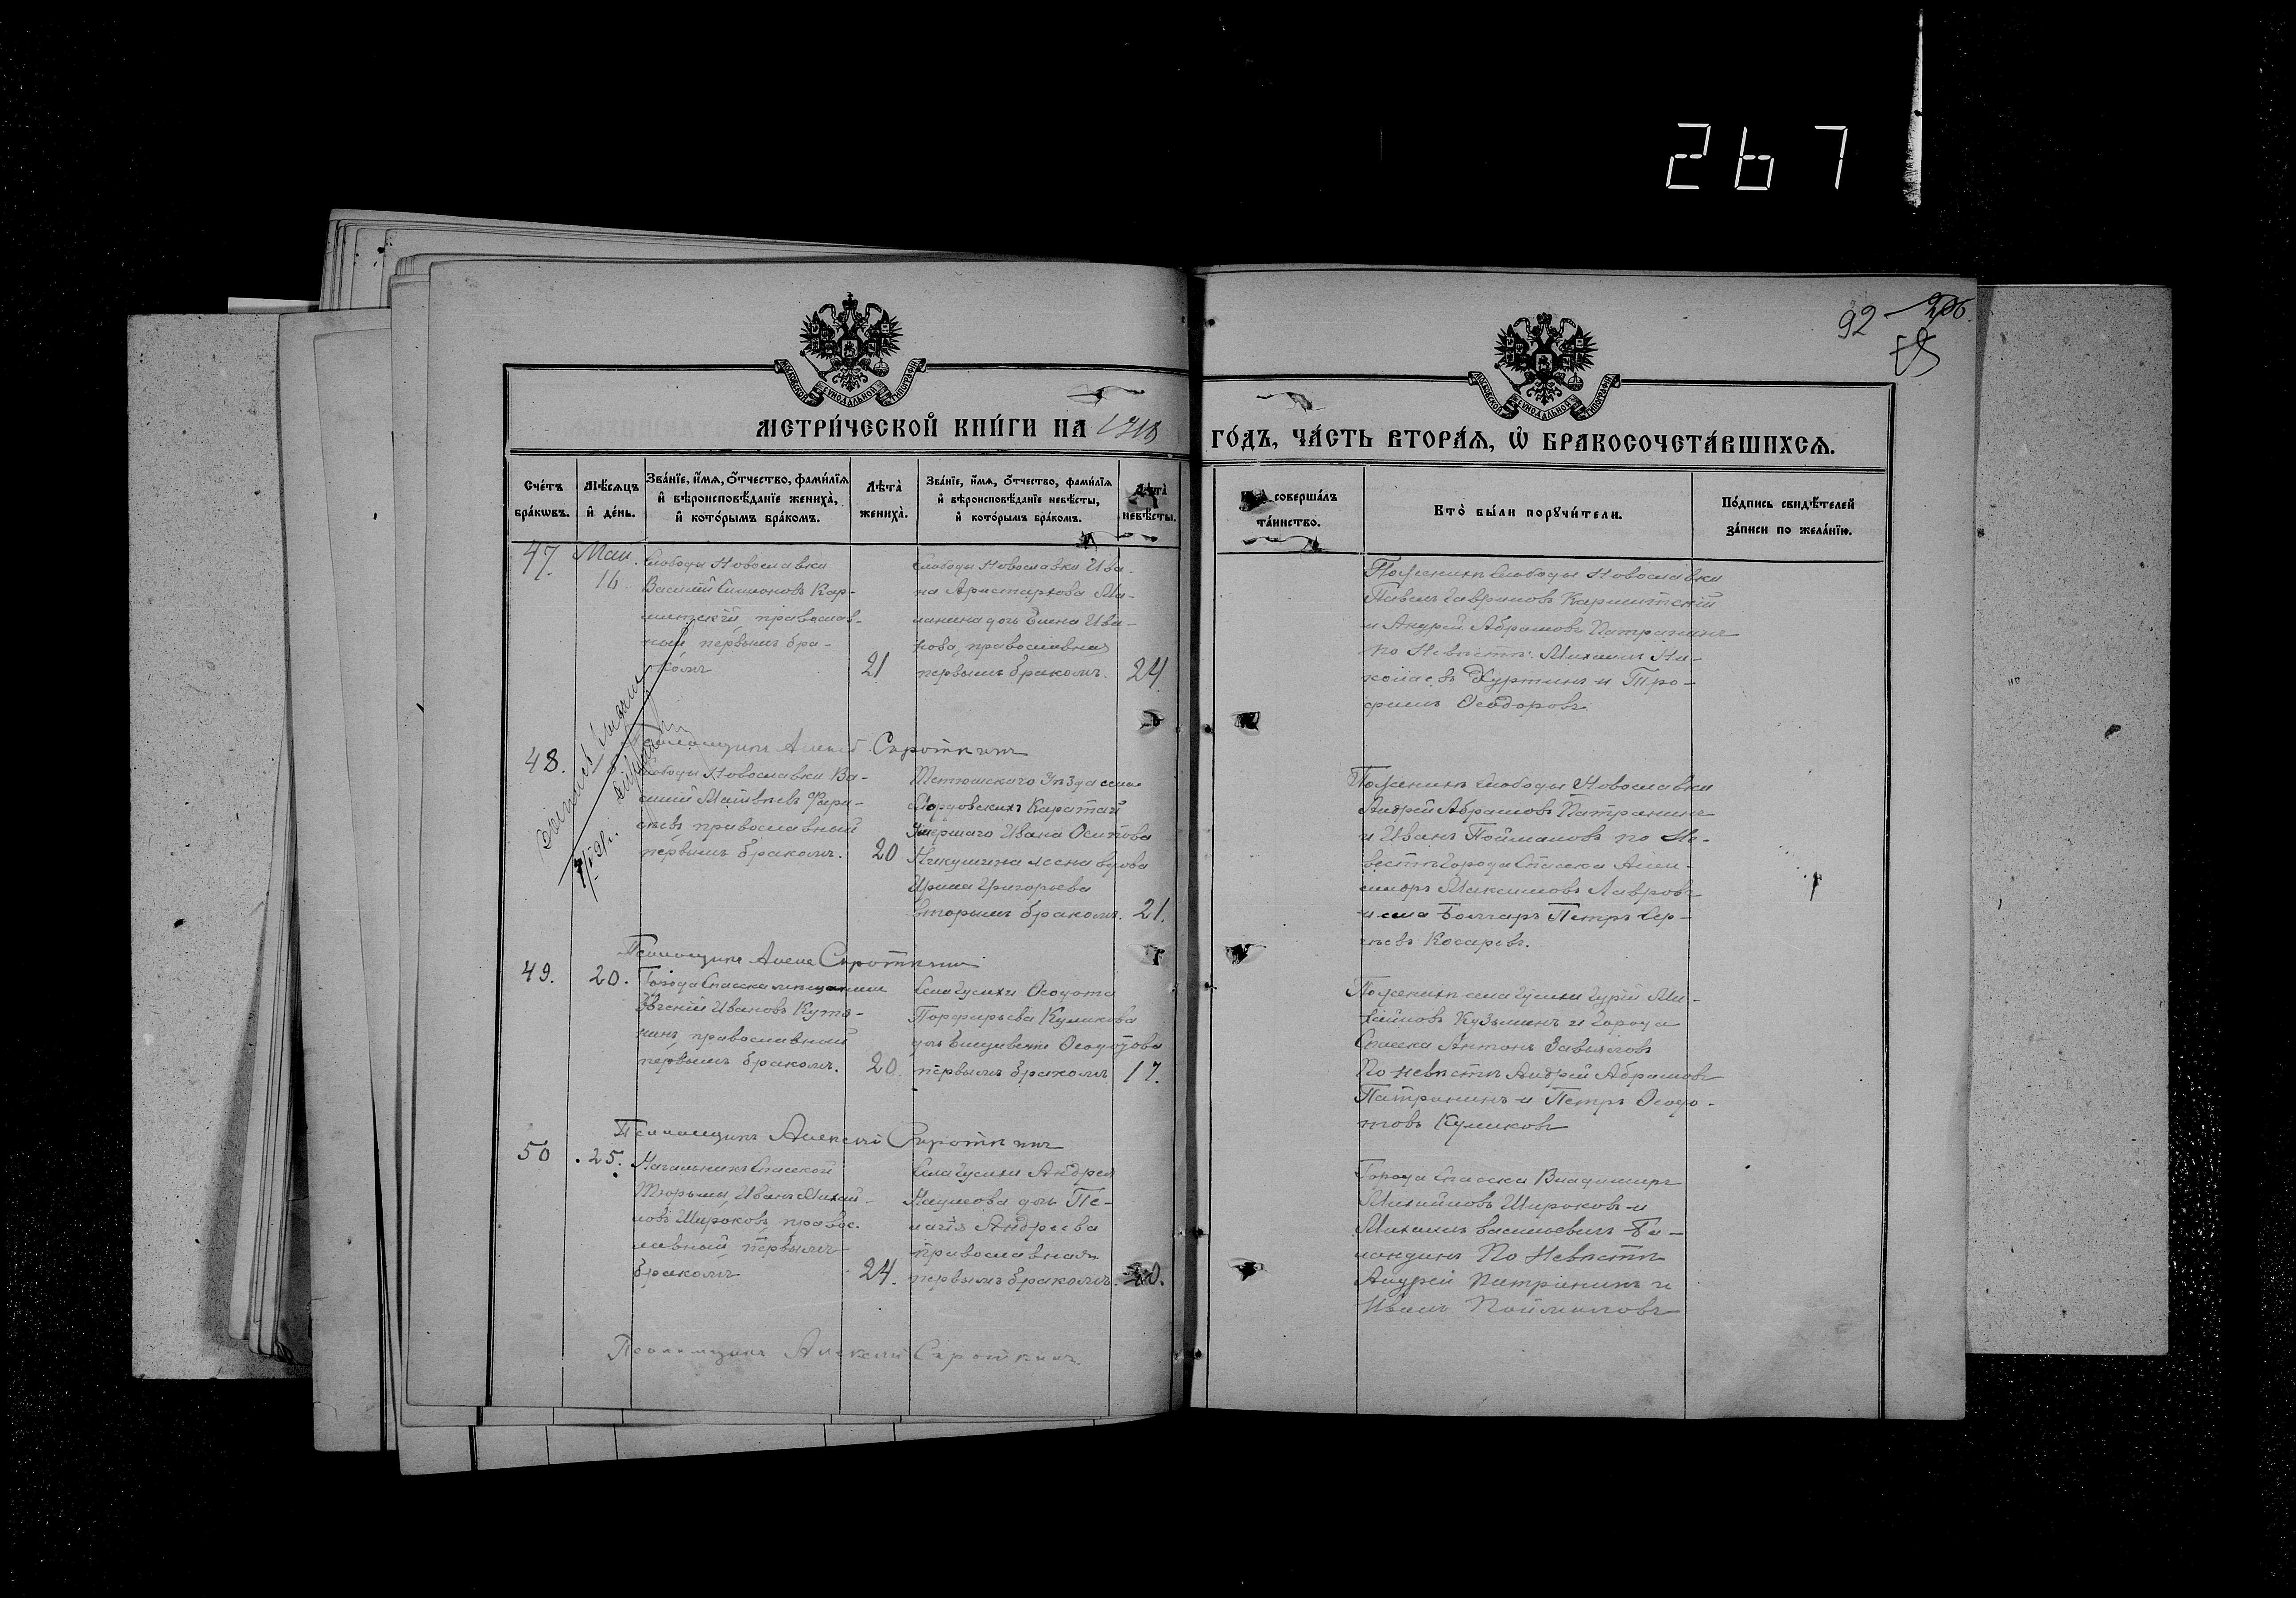 267
92 206
МОСКОВСКОЙ СѴНОДАЛЬНОЙ ТИПОГРАФІИ
МОСКОВСКОЙ СѴНОДАЛЬНОЙ ТИПОГРАФІИ
МЕТРИ́ЧЕСКОЙ КНИ́ГИ НА 1918
ГО́ДЪ, ЧА́СТЬ ВТОРА́Я, Ѡ БРАКОСОЧЕТА́ВШИХСЯ.
Сче́тъ бра́кѡвъ.
Мѣ́сяцъ и де́нь.
Зва́нїе, и́мя, о́тчество, фами́лїя
и вѣроисповѣ́данїе жениха̀,
и кото́рымъ бра́комъ.
Лѣта̀ жениха̀.
Зва́нїе, и́мя, о́тчество, фами́лїя
и вѣроисповѣ́данїе невѣ́сты,
и кото́рымъ бра́комъ.
Лѣта̀ невѣ́сты.
соверша́лъ
та́инство.
Кто̀ бы́ли порꙋчи́тели.
По́дпись свидѣ́телей
за́писи по жела́нїю.
47. Май. 16.
Слободы Новославки
Василій Симоновъ Кар-
православ-
ный, первымъ бра-
комъ
21
Слободы Новославки Ива-
на Аристархова Ма-
ланина дочь Елена Ива-
нова, православная
первымъ бракомъ.
24
По женихѣ Слободы Новославки
Павелъ Гавриловъ
и Андрей Абрамовъ Патранинъ
по Невѣстѣ: Михаилъ Ни-
колаевъ Куртинъ и Тро-
фимъ Ѳеодоровъ
Псаломщикъ Алексѣй Сироткинъ
48.
Слободы Новославки Ва-
силій Матвѣевъ
православный
первымъ бракомъ.
20
Тетюшскаго Уѣзда села
Мордовскихъ Каратай
Умершаго Ивана Осипова
Никушина жена вдова
Ирина Григорьева
вторымъ бракомъ.
21.
По женихѣ Слободы Новославки
Андрей Абрамовъ Патранинъ
и Иванъ Поймановъ по Не-
вестѣ города Спасска Алек-
сандръ Максимовъ Лавровъ
и села Болгаръ Петръ Сер-
гѣевъ Косаревъ.
Псаломщикъ Алексѣй Сироткинъ
49. 20.
Города Спасска мѣщанинъ
Евгеній Ивановъ Кута-
нинъ православный
первымъ бракомъ.
20.
Села Гусихи Ѳеодота
Порфирьева Куликова
дочь Елизавета Ѳеодотова
первымъ бракомъ
17.
По женихѣ села Гусихи Гурій Ми-
хайловъ Кузьминъ и города
Спасска Антонъ Завьяловъ
По невѣстѣ Андрей Абрамовъ
Патранинъ и Петръ Ѳеодо-
товъ Куликовъ
Псаломщикъ Алексѣй Сироткинъ
50. 25.
Начальникъ Спасской
Тюрьмы, Иванъ Михай-
ловъ Широковъ, правос-
лавный, первымъ
бракомъ
24.
Села Гусихи Андрея
Наумова дочь Пе-
лагія Андреева
православная
первымъ бракомъ.
20.
Города Спасска Владимиръ
Михайловъ Широковъ и
Михаилъ Васильевичъ Ба-
ландинъ По Невѣстѣ
Андрей Патранинъ и
Иванъ Поймановъ
Псаломщикъ Алексѣй Сироткинъ.